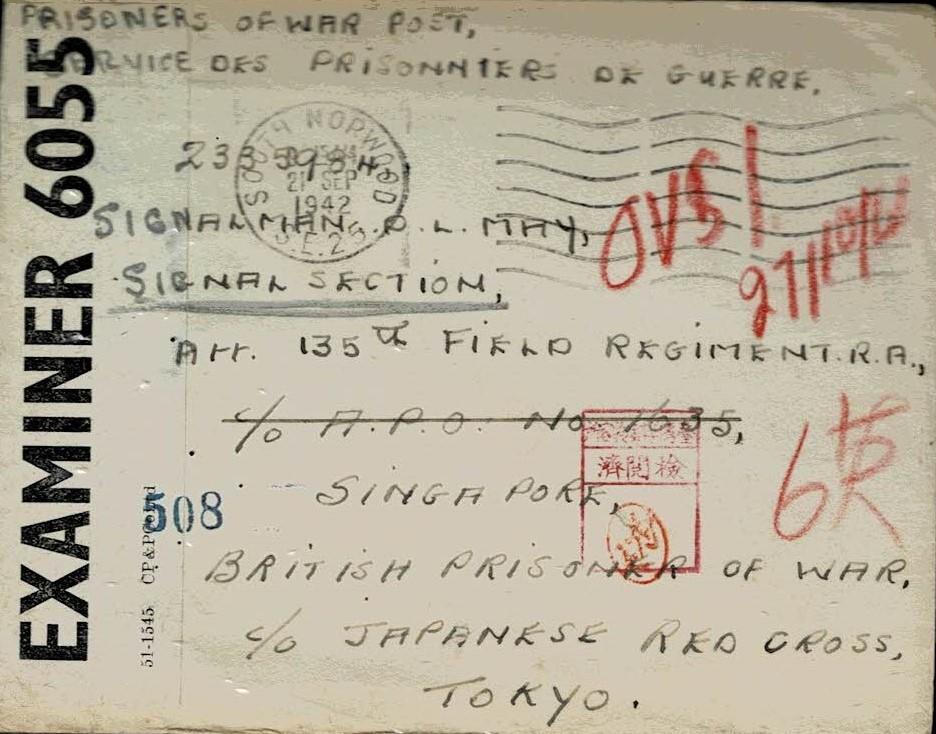 PRISONERS OF WAR POST,
SERVICE DES PRISONNIERS DE GUERRE.
SOUTH NORWOOD
21 SEP
1942
S.E.25
SIGNALMAN. D. L. MAY,
SIGNAL SECTION,
Att. 135th FIELD REGIMENT. R.A.,
c/o A.P.O. No 1635,
SINGAPORE,
BRITISH PRISONER OF WAR,
c/o JAPANESE RED CROSS,
TOKYO.
EXAMINER 6055
51-1545
508
濟閲檢
6英